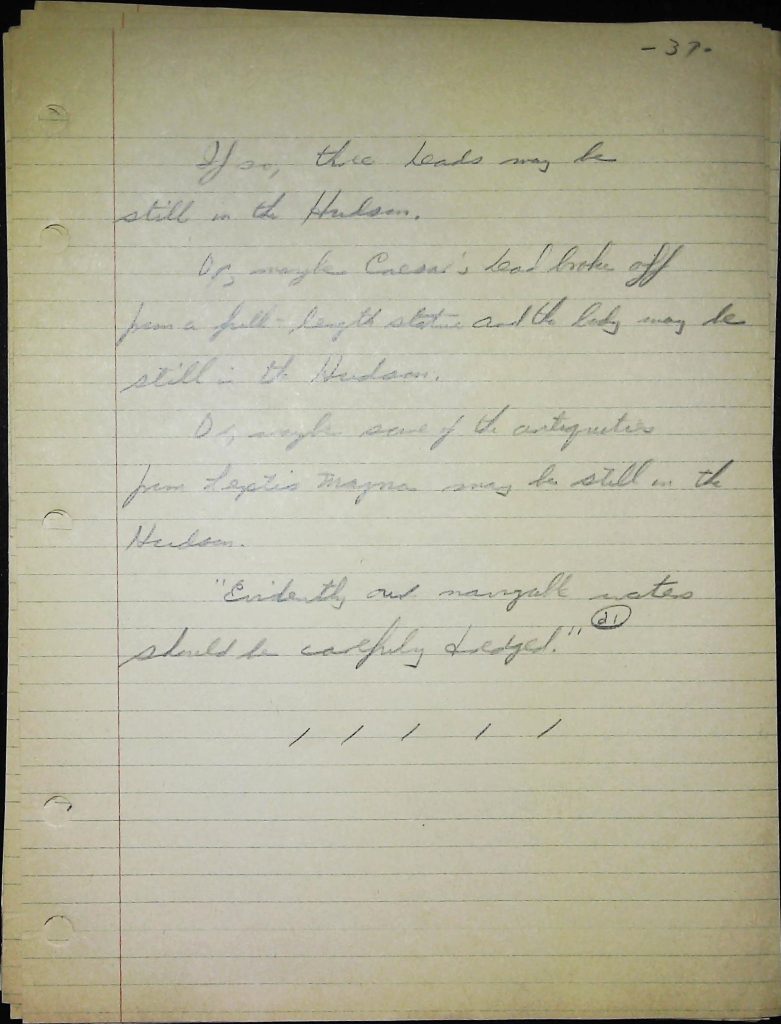 - 37 -
If so, three heads may be
still in the Hudson.
Or, maybe Caesar's head broke off
from a full-length statue and the body may be
still in the Hudson.
Or, maybe some of the antiquities
from Leptis Magna may be still in the
Hudson.
"Evidently our navigable waters
should be carefully dredged." 21
/ / / / /